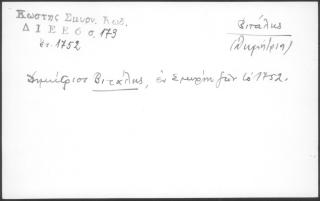 Κωστης Σμυρν. Κωδ.
Δ Ι Ε Ε 6 σ. 179
ἔτ. 1752
Βιτάλης
(Δημήτριος)
Δημήτριος Βιτάλης, ἐν Σμύρνῃ ζῶν τὸ 1752.